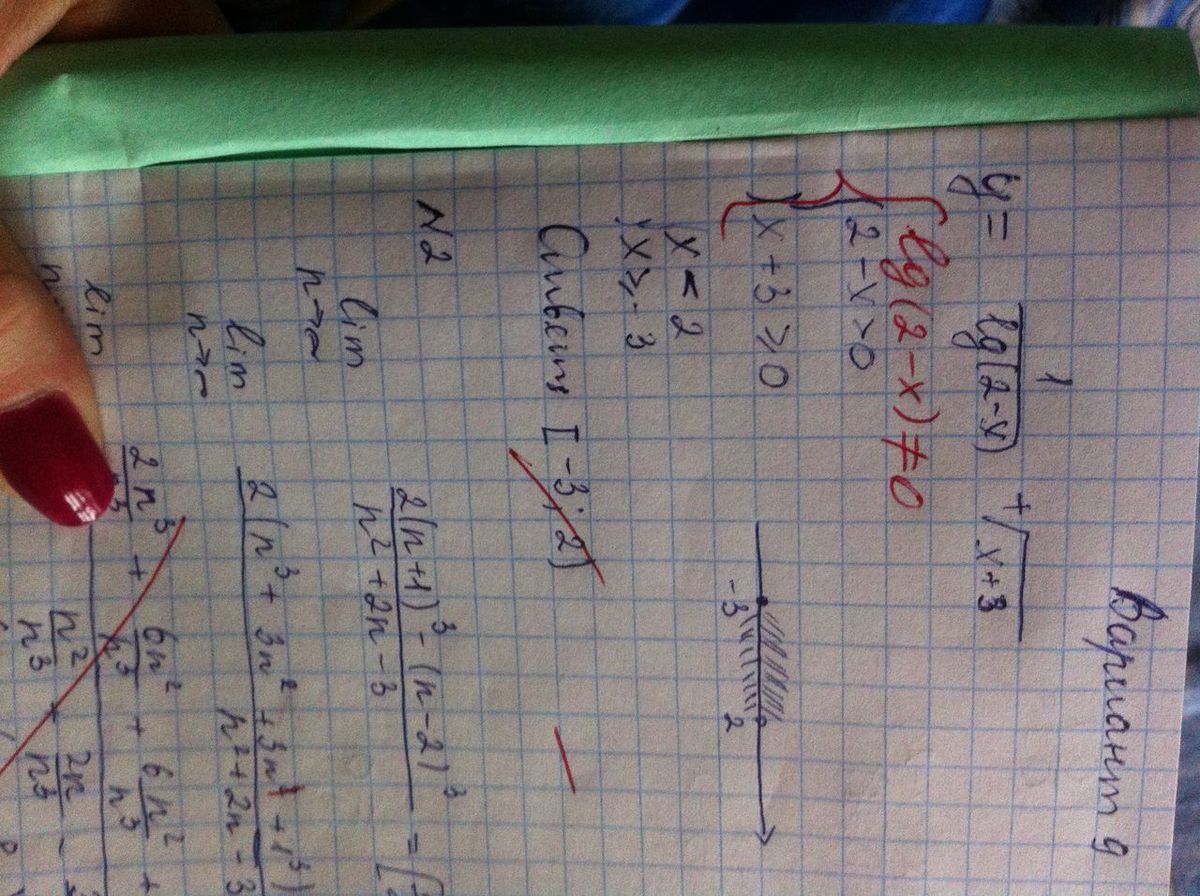 Вариант 9
y = 1/lg(2-x) + √(x+3)
lg(2-x) ≠ 0
2-x>0
x+3≥0
-3 2
x<2
x≥-3
Ответ [-3; 2)
N2
lim n→∞ (2(n+1)³ - (n-2)³)/(n²+2n-3) =
lim n→∞ 2(n³ + 3n² + 3n¹ + 1³) / n²+2n-3
lim 2n³ + 6n²/n³ + 6n²/n³ +
n²/n³ + 2n/n³ -